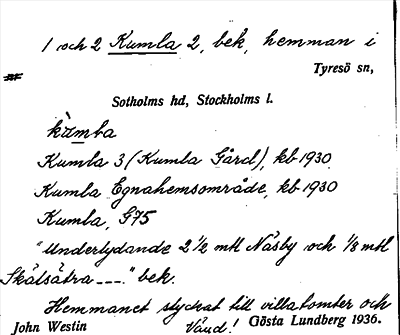 1 och 2 Kumla 2, bek, hemman i
Tyresö sn,
Sotholms hd, Stockholms l.
kùmba
Kumla 3 (Kumla Gård), kb 1930
Kumla Egnahemsområde, kb 1930
Kumla, G75
"Underlydande 2 1/2 mtl Näsby och 1/8 mtl
Skälsätra ----." bek.
Hemmanet styckat till villatomter och
John Westin Vänd! Gösta Lundberg 1936.